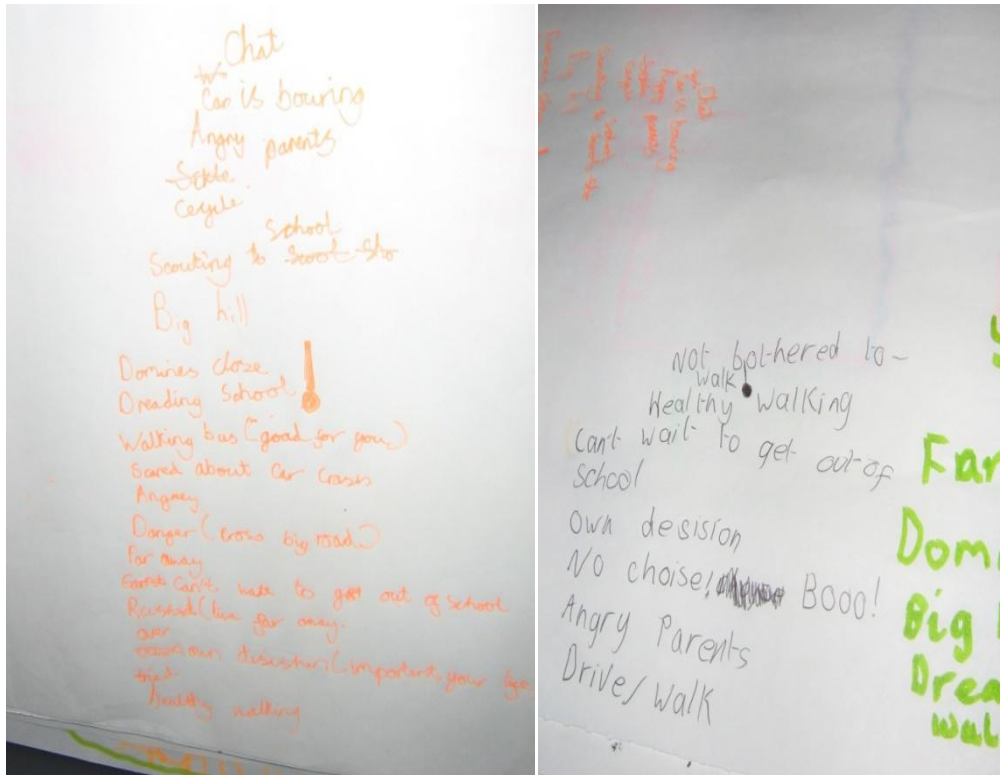 Chat
Car is bouring
Angry parents
Cycule
School
Scouting to scoot sho
Big hill
Domines close
Dreading School
Walking bus (good for you)
Scared about Car Crash
Angrey
Danger (cross big road)
Far away
Can't wate to get out of school
Rushed (live far away.
own disishun (important, your
healthy walking
Chat
Car is bouring
Angry parents
Not bothered to-
walk
Healthy walking
Can't wait to get out of
School
Own desision
No choise! Booo!
Angry Parents
Drive/walk
Far
Domi
Big
Drea
Wal